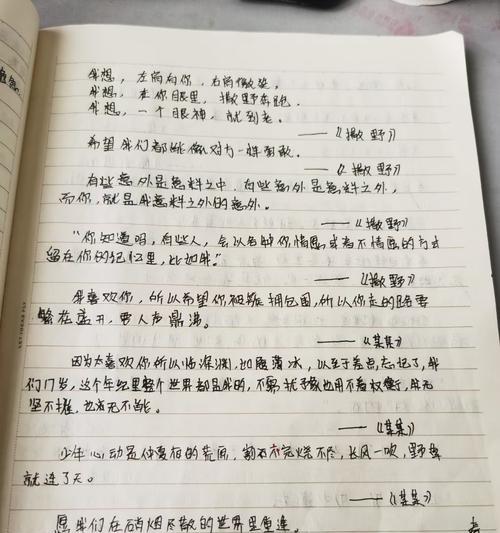 我想，左肩有你，右肩微笑。
我想，在你眼里，撒野奔跑。
我想，一个眼神，就到老。
——《撒野》
希望我们都能像对方一样勇敢。
——《撒野》
有些意外是意料之中，有些意外是意料之外，
而你，就是我意料之外的意外。
——《撒野》
“你知道吗，有些人，会以各种你情愿或者不情愿的方式
留在你的记忆里，比如我。”
——《撒野》
我喜欢你，所以希望你被簇拥包围，所以你走的路要
繁花盛开，要人声鼎沸。
——《某某》
因为太喜欢你所以临深渊，如履薄冰，以至于差点忘记了，我
们17岁，这个年纪里整个世界都是我的，不需
也用不着权衡，我无
坚不摧，也无所不能。
——《某某》
少年心动是仲夏夜的荒原，割不完烧不尽，长风一吹，野草
就连了天。
——《某某》
愿我们在硝烟尽散的世界里重逢